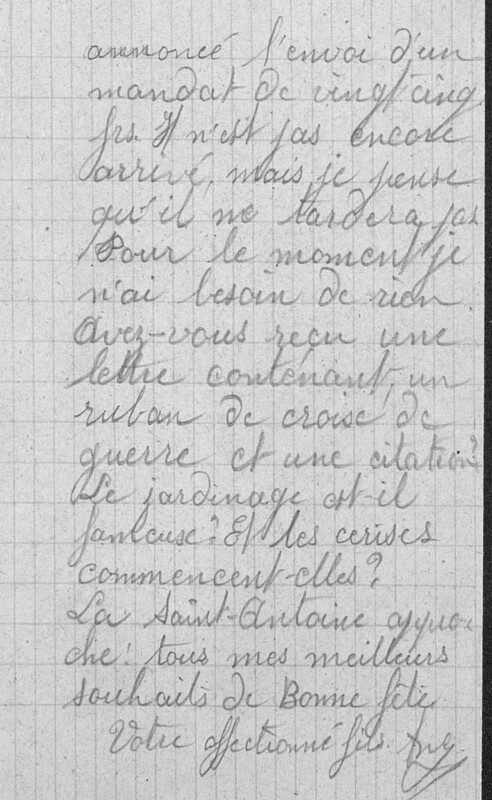 annoncé l'envoi d'un
mandat de vingt cinq
frs. Il n'est pas encore
arrivé, mais je pense
qu'il ne tardera pas
Pour le moment je
n'ai besoin de rien
Avez-vous reçu une
lettre contenant un
ruban de croix de
guerre et une citation?
Le jardinage est-il
fameux? Et les cerises
commencent-elles?
La Saint-Antoine appro-
che! tous mes meilleurs
souhaits de Bonne fête
Votre affectionné fils.